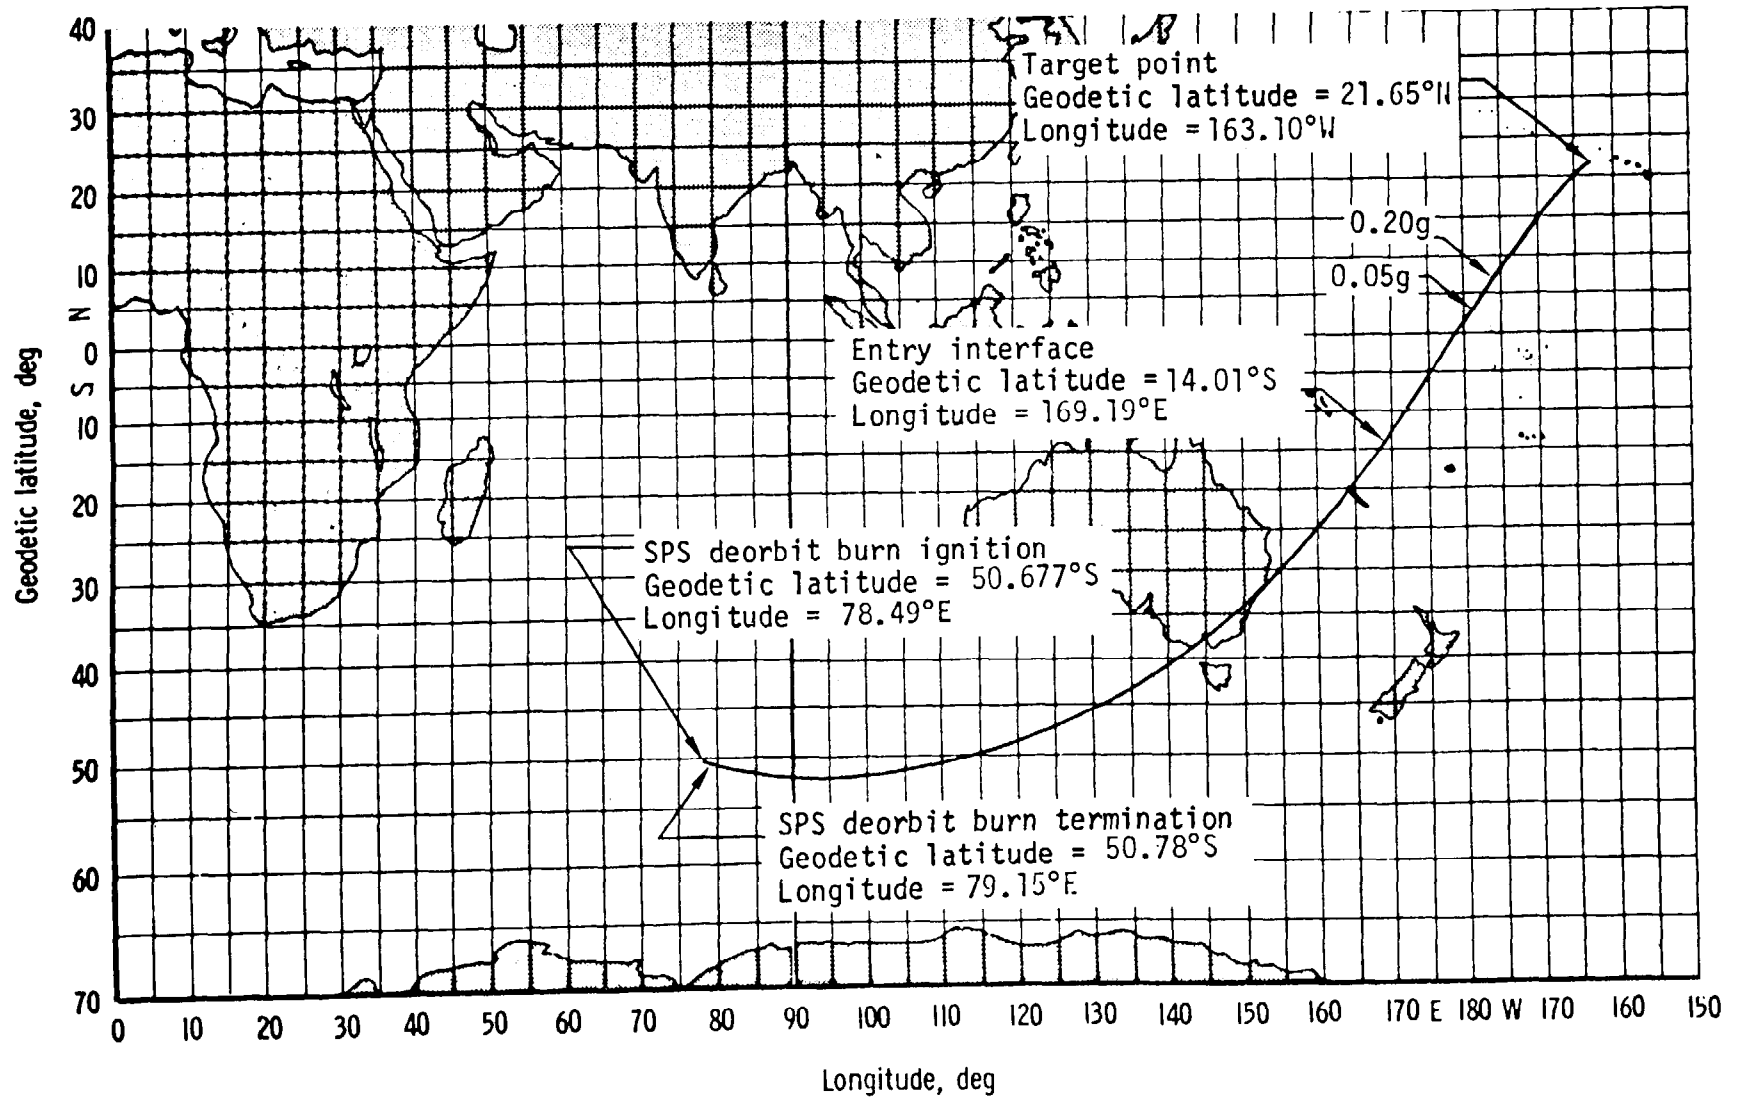 40
30
20
10
N
0
S
10
20
30
40
50
60
70
Geodetic latitude, deg
Target point
Geodetic latitude = 21.65°N
Longitude = 163.10°W
0.20g
0.05g
Entry interface
Geodetic latitude = 14.01°S
Longitude = 169.19°E
SPS deorbit burn ignition
Geodetic latitude = 50.677°S
Longitude = 78.49°E
SPS deorbit burn termination
Geodetic latitude = 50.78°S
Longitude = 79.15°E
0 10 20 30 40 50 60 70 80 90 100 110 120 130 140 150 160 170 E 180 W 170 160 150
Longitude, deg